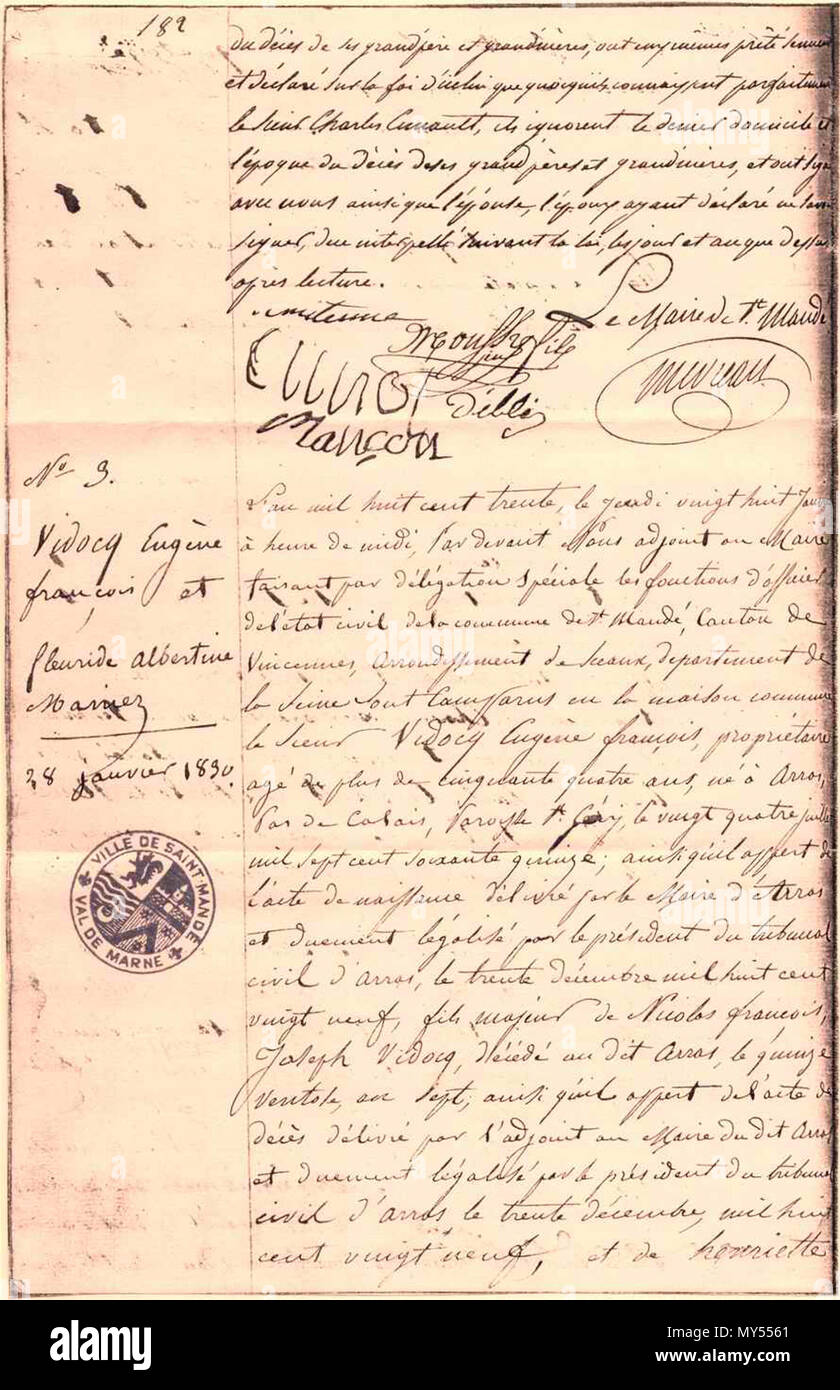 182
du décès de ses grandpère et grandmères, ont eux mêmes prêté
et déclaré sur la foi d'icelui que quoiqu'ils connaissent parfaitement
le sieur Charles Cunault, ils ignorent le dernier domicile et
l'époque du décès de ses grandpères et grandmères, et ont signé
avec nous ainsi que l'épouse, l'époux ayant déclaré ne savoir
signer, de ce interpellé suivant la loi, les jour et an que dessus
après lecture.
Le Maire de St. Mandé
Mançon
N° 3.
Vidocq Eugène
françois et
fleuride albertine
Maniez
28 janvier 1830.
L'an mil huit cent trente, le Jeudi vingt huit Janv
à heure de midi, Par devant Nous adjoint au Maire
faisant par délégation spéciale les fonctions d'officier
de l'état civil de la commune de St Mandé, Canton de
Vincennes, arrondissement de Sceaux, département de
la Seine Sont Comparus en la maison commune
le Sieur Vidocq Eugène françois, propriétaire
agé de plus de cinquante quatre ans, né à Arras,
Pas de Calais, Paroisse St. Géry, le vingt quatre juillet
mil sept cent soixante quinze; ainsi qu'il appert de
l'acte de naissance délivré par le Maire d'Arras
et duement légalisé par le président du tribunal
civil d'Arras, le trente décembre mil huit cent
vingt neuf, fils majeur de Nicolas françois,
Joseph Vidocq, décédé au dit Arras, le quinze
ventose, an sept; ainsi qu'il appert de l'acte de
décès délivré par l'adjoint au Maire du dit Arras
et duement légalisé par le président du tribunal
civil d'arras le trente décembre, mil huit
cent vingt neuf, et de henriette
VILLE DE SAINT-MANDÉ
VAL DE MARNE
alamy
Image ID: MY5561
www.alamy.com